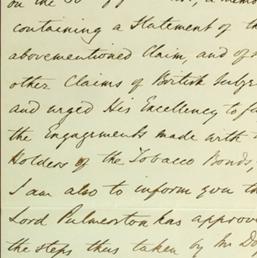 containing a Statement of th
abovementioned Claim, and of
other Claims of British Subje
and urged His Excellency to fu
the Engagements made with
Holders of the Tobacco Bonds,
I am also to inform you th
Lord Palmerston has approve
the steps thus taken by Mr Do